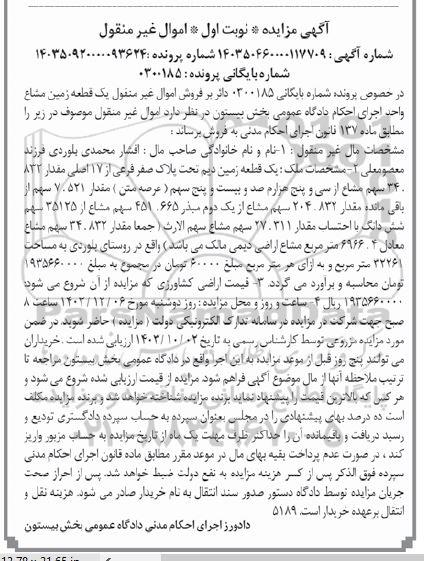 آگهی مزایده * نوبت اول * اموال غیر منقول
شماره آگهی : ۱۴۰۳۵۰۴۶۶۰۰۰۰۱۱۷۷۰۹ شماره پرونده : ۱۴۰۳۵۰۹۲۰۰۰۰۰۹۳۶۲۴
شماره بایگانی پرونده : ۰۳۰۰۱۸۵
در خصوص پرونده شماره بایگانی ۰۳۰۰۱۸۵ دائر بر فروش اموال غیر منقول یک قطعه زمین مشاع
واحد اجرای احکام دادگاه عمومی بخش بیستون در نظر دارد اموال غیر منقول موصوف در زیر را
مطابق ماده ۱۳۷ قانون اجرای احکام مدنی به فروش برساند :
مشخصات مال غیر منقول : ۱-نام و نام خانوادگی صاحب مال : افشار محمدی یلوردی فرزند
معصومعلی ۲-مشخصات ملک : یک قطعه زمین دیم تحت پلاک صفر فرعی از ۱۷ اصلی مقدار ۸۳۲
.۳۴ سهم مشاع از سی و پنج هزارم صد و بیست و پنج سهم ( عرصه متن ) مقدار ۵۲۱ .۷ سهم از
باقی مانده مقدار ۸۳۲ .۲۰۴ سهم مشاع از یک دوم مبذر ۶۶۵ .۴۵۱ سهم مشاع از ۳۵۱۲۵ سهم
شش دنگ با احتساب مقدار ۳۱۱ .۲۷ سهم مشاع سهم الارث ( جمعا مقدار ۸۳۲ .۳۴ سهم مشاع
معادل ۴ .۶۹۶۶ متر مربع مشاع اراضی دیمی مالک می باشد ) واقع در روستای یلوردی به مساحت
۳۲۲۶۱ متر مربع و به ازای هر متر مربع مبلغ ۶۰۰۰۰ تومان در مجموع به مبلغ ۱۹۳۵۶۶۰۰۰۰
تومان محاسبه و برآورد می گردد. ۳- قیمت اراضی کشاورزی که مزایده از آن شروع می شود:
۱۹۳۵۶۶۰۰۰۰۰ ریال ۴- ساعت و روز و محل مزایده : روز دوشنبه مورخ ۱۴۰۳/۱۲/۰۶ ساعت ۸
صبح جهت شرکت در مزایده در سامانه تدارک الکترونیکی دولت ( مزایده ) حاضر شوید. در ضمن
مورد مزایده مشروعی توسط کارشناس رسمی به تاریخ ۱۴۰۳/۱۰/۰۲ ارزیابی شده است . خریداران
می توانند پنج روز قبل از موعد مزایده به این اجرا واقع در دادگاه عمومی بخش بیستون مراجعه تا
ترتیب ملاحظه آنها از مال موضوع آگهی فراهم شود. مزایده از قیمت ارزیابی شده شروع می شود و
هر کس که بالاترین قیمت را پیشنهاد نماید برنده مزایده شناخته خواهد شد و برنده مزایده مکلف
است ده درصد بهای پیشنهادی را در مجلس بعنوان سپرده به حساب سپرده دادگستری تودیع و
رسید دریافت و باقیمانده آن را حداکثر ظرف مهلت یک ماه از تاریخ مزایده به حساب مزبور واریز
کند ، در صورت عدم پرداخت بقیه بهای مال در موعد مقرر مطابق ماده قانون اجرای احکام مدنی
سپرده فوق الذکر پس از کسر هزینه مزایده به نفع دولت ضبط خواهد شد. پس از احراز صحت
جریان مزایده توسط دادگاه دستور صدور سند انتقال به نام خریدار صادر می شود. هزینه نقل و
انتقال برعهده خریدار است. ۵۱۸۹
دادورز اجرای احکام مدنی دادگاه عمومی بخش بیستون